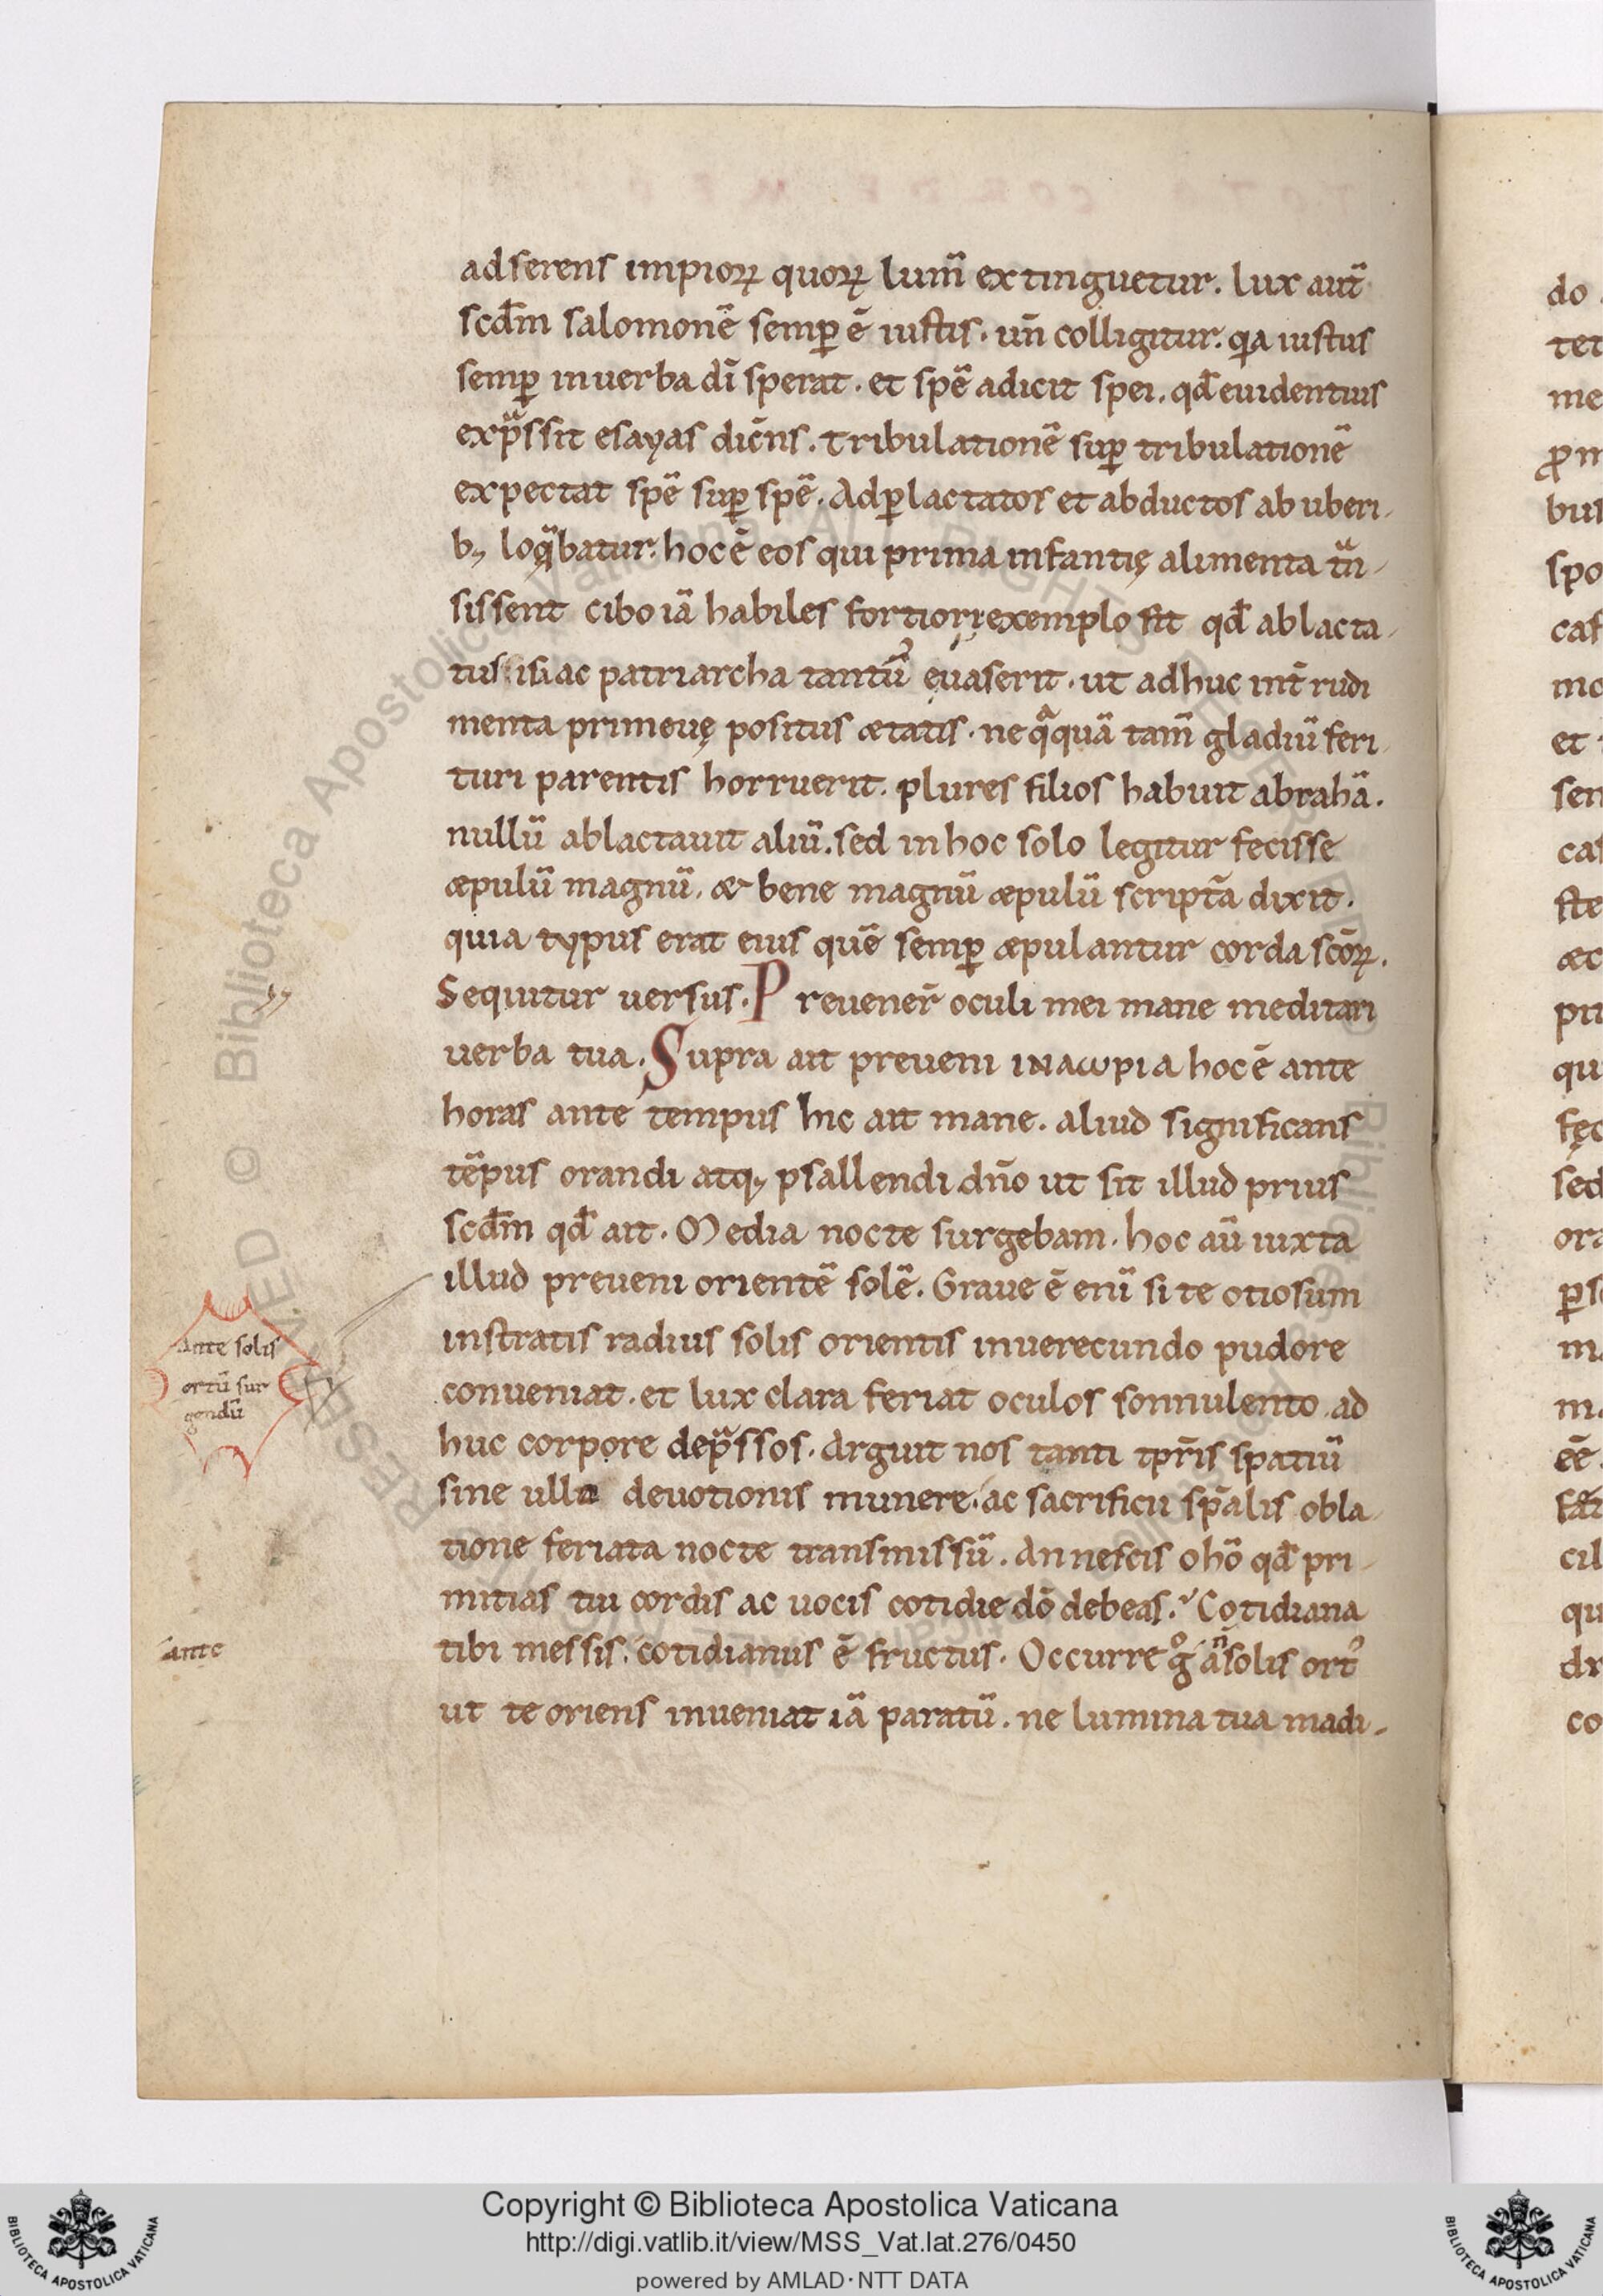 adserens impioꝝ quoꝝ lum̄ extinguetur. lux aut̄
scd̄m salomonē semꝑ ē iustis. un̄ colligitur. qa iustus
semꝑ in uerba dī sperat. et spē adicit spei. qd̄ euidentius
exp̄ssit esayas dicn̄s. Tribulationē suꝑ tribulationē
expectat spē suꝑ spē. Ad ꝑlactatos et abductos ab uberi-
b; loq̄batur. hoc ē eos qui prima infantię alimenta tn̄-
sissent cibo iā habiles fortiori exemplo sit qd̄ ablacta-
tus isiac patriarcha tantū euaserit. ut adhuc int̄ rudi
menta primeuę positus ætatis. ne q̄quā tam̄ gladiū feri-
turi parentis horruerit. plures filios habuit abrahā.
nullū ablactauit aliū. sed in hoc solo legitur fecisse
æpulū magnū. & bene magnū æpulū script̄a dixit.
quia typus erat eius quē semꝑ æpulantur corda scōꝝ.
Sequitur uersus. Preuener̄ oculi mei mane meditari
uerba tua. Supra ait preueni INAωPIA hoc ē ante
horas ante tempus hic ait mane. aliud significans
tēpus orandi atq; psallendi dn̄o ut sit illud prius
scd̄m qd̄ ait. Media nocte surgebam. hoc aū iuxta
illud preueni orientē solē. Graue ē enī si te otiosum
in stratis radius solis orientis inuerecundo pudore
conueniat. et lux clara feriat oculos somnulento ad
huc corpore dep̄ssos. Arguit nos tanti tpr̄is spatiū
sine ulla deuotionis munere. ac sacrificii sp̄alis obla-
tione feriata nocte transmissū. An nescis o hō qd̄ pri-
mitias tui cordis ac uocis cotidie dō debeas. Cotidiana
tibi messis. cotidianus ē fructus. Occurre gͦ an̄ solis ort᾽
ut te oriens inueniat iā paratū. ne lumina tua madi-
Ante solis
ortū sur
gendū
ante
do
tet
me
bus
spo
caf
mo
et
sen
caf
ste
æc
pri
qu
fęc
sed
ora
ꝑs
ma
ma
eē.
cil
qu
dr
co
Copyright © Biblioteca Apostolica Vaticana
http://digi.vatlib.it/view/MSS_Vat.lat.276/0450
powered by AMLAD·NTT DATA
BIBLIOTECA APOSTOLICA VATICANA
BIBLIOTECA APOSTOLICA VATICANA